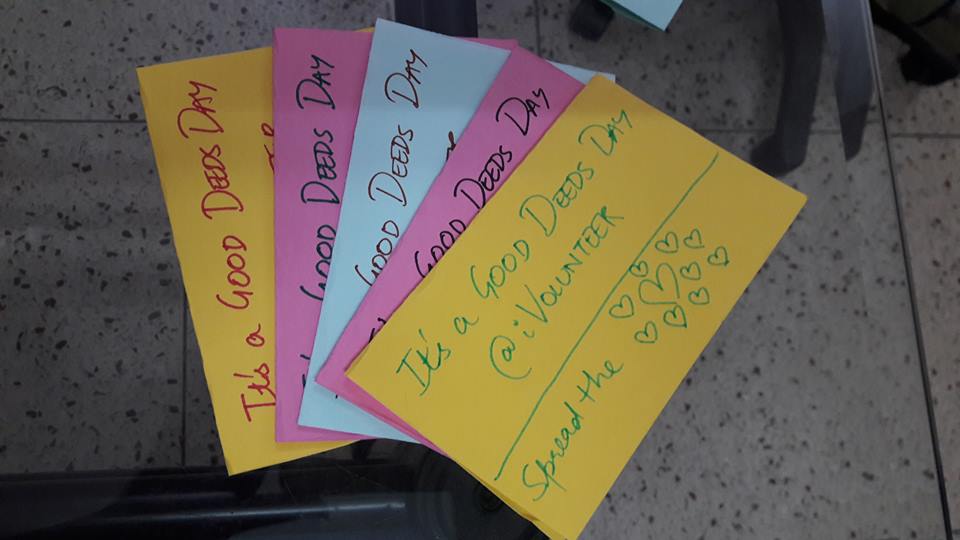 It's a GOOD DEEDS DAY
GOOD DEEDS DAY
GOOD DEEDS DAY
GOOD DEEDS DAY
It's a GOOD DEEDS DAY
@iVOLUNTEER
Spread the